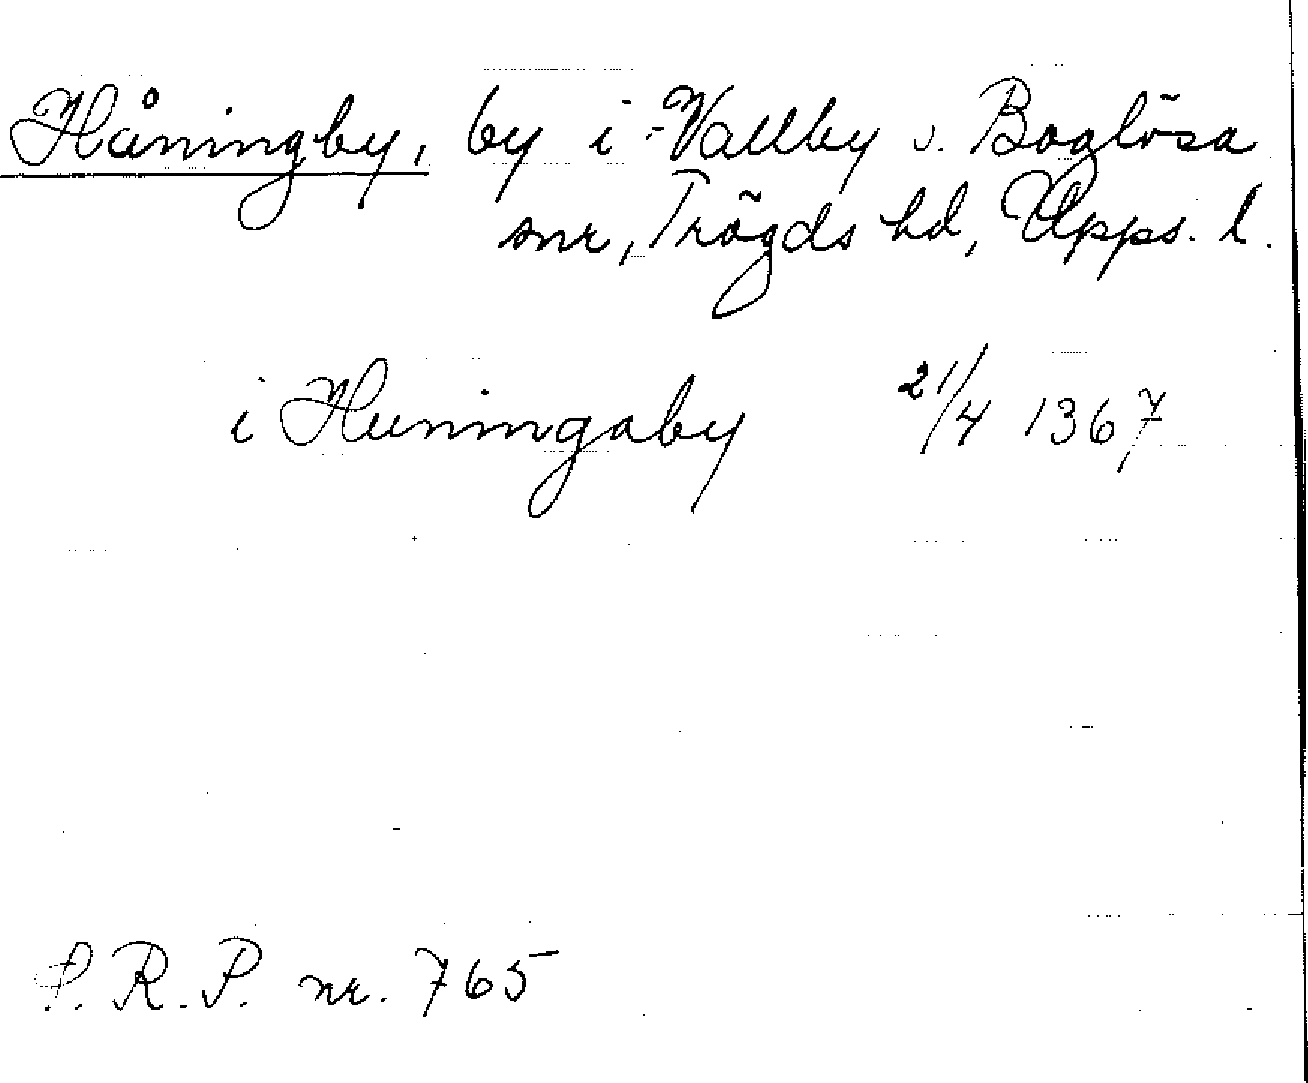 Håningby, by i Vallby o. Boglösa
snr, Trögds hd, Upps. l.
i Huningaby 21/4 1367
S.R.P. nr. 765